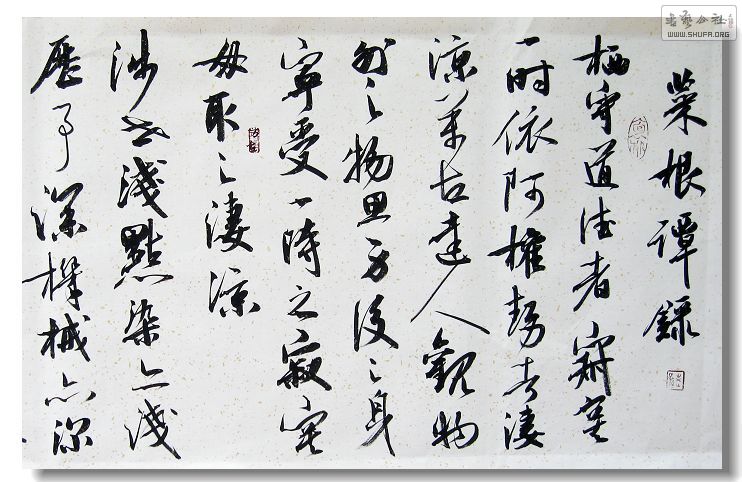 菜根譚錄
栖守道德者寂寞
一时依阿權勢者凄
凉萬古達人觀物
外之物思身後之身
寧受一時之寂寞
毋取之凄凉
涉世淺點染亦淺
歷事深機械亦深
書藝公社
WWW.SHUFA.ORG